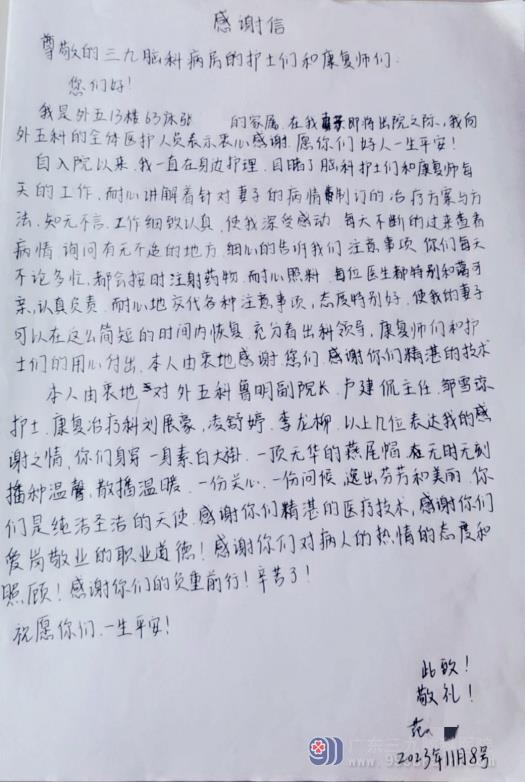 感谢信
尊敬的三九脑科病房的护士们和康复师们:
您们好!
我是外五13楼63床张 的家属.在我 即将出院之际,我向
外五科的全体医护人员表示衷心感谢.愿你们好人一生平安!
自入院以来.我一直在身边护理.目睹了脑科护士们和康复师每
天的工作.耐心讲解着针对妻子的病情 制订的治疗方案与方
法.知无不言.工作细致认真.使我深受感动.每天不断的过来查看
病情.询问有无不适的地方.细心的告诉我们注意事项.你们每天
不论多忙.都会按时注射药物.耐心照料.每位医生都特别和蔼可
亲,认真负责.耐心地交代各种注意事项,态度特别好.使我的妻子
可以在这么简短的时间内恢复.充分看出科领导,康复师们和护
士们的用心付出.本人由衷地感谢您们.感谢你们精湛的技术
本人由衷地 对外五科鲁明副院长.卢建侃主任.邹雪琼
护士.康复治疗科刘展豪,凌舒婷.李龙柳.以上几位表达我的感
谢之情.你们身穿一身素白大褂.一顶无华的燕尾帽.在无时无刻
播种温馨,散播温暖.一份关心.一份问候.逸出芬芳和美丽.你
们是纯洁圣洁的天使.感谢你们精湛的医疗技术,感谢你们
爱岗敬业的职业道德!感谢你们对病人的热情的态度和
照顾!感谢你们的负重前行!辛苦了!
祝愿你们.一生平安!
此致!
敬礼!
范
2023年11月8号
广东三九